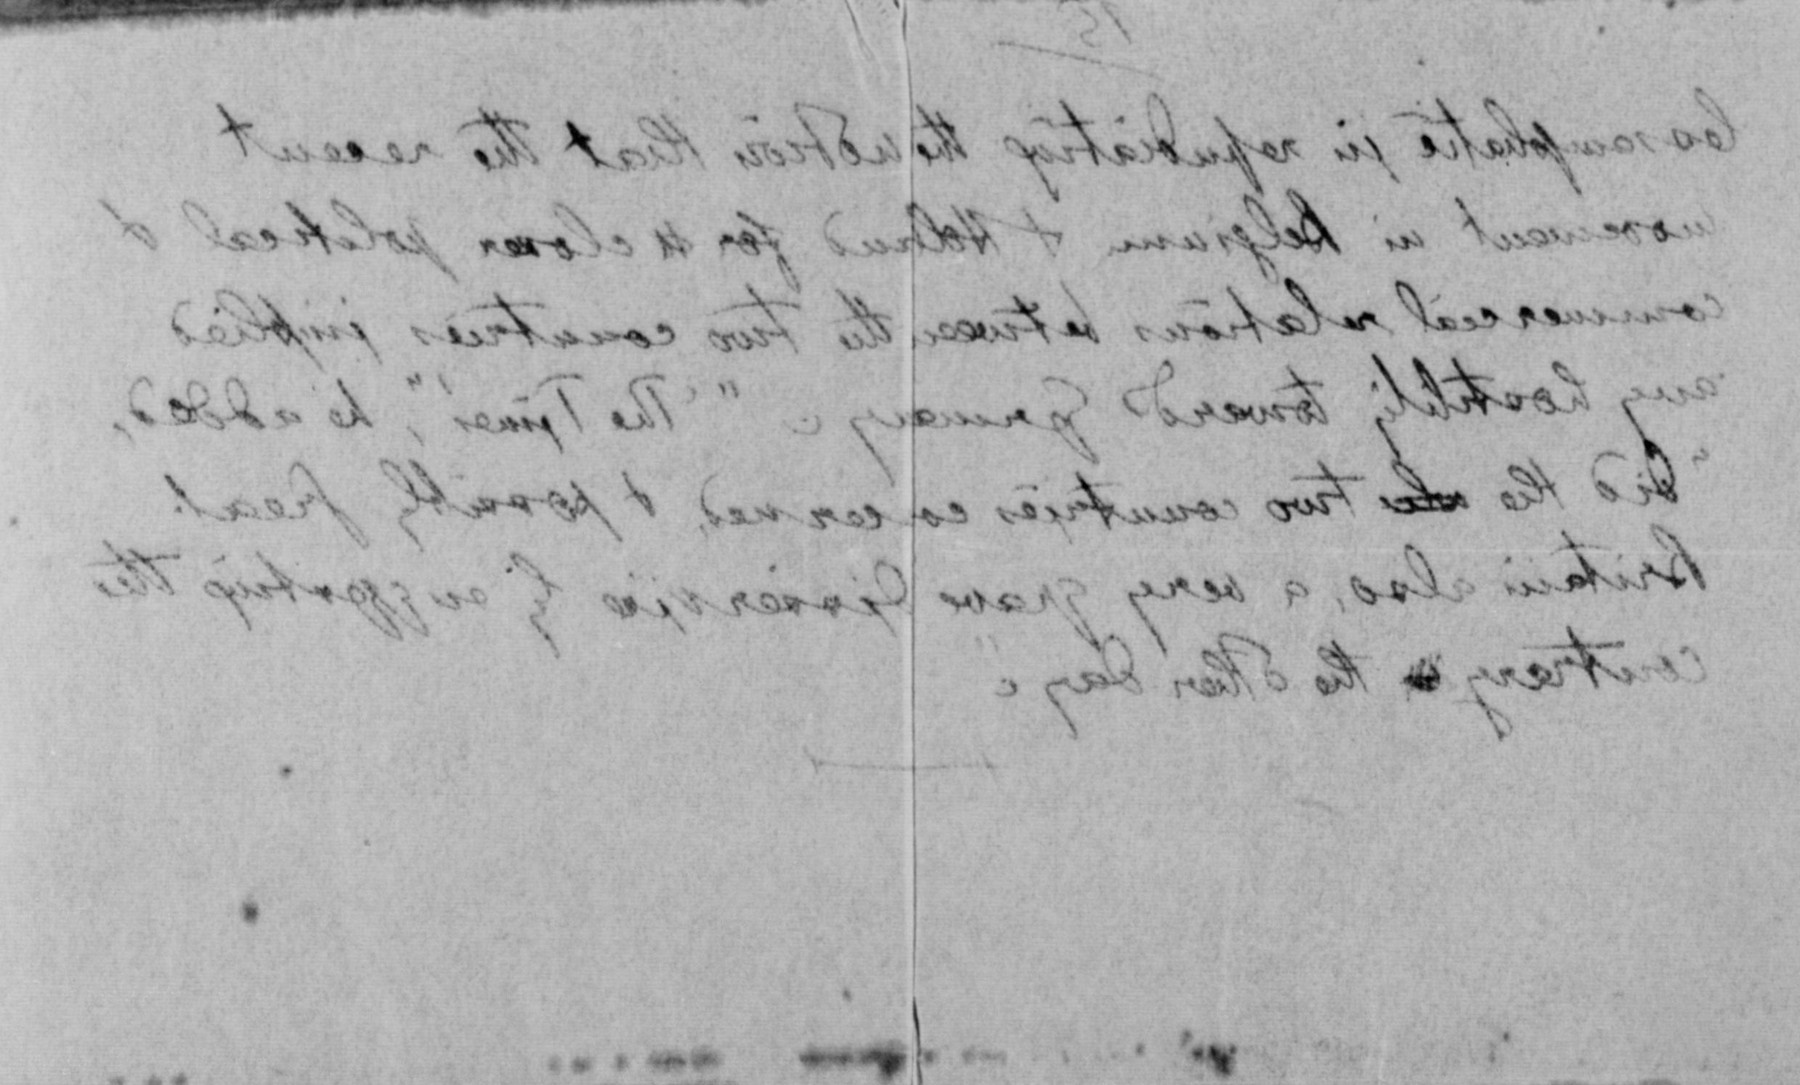 15
less emphatic in repudiating the notion that the recent
movement in Belgium & Holland for closer political &
commercial relations between the two countries implied
any hostility towards Germany. "The 'Times'", he added,
"did the two countries concerned, & possibly Great
Britain also, a very grave disservice by suggesting the
contrary the other day."